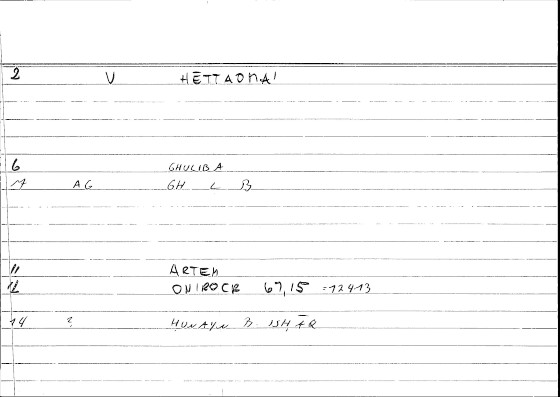 2 V HĒTTAOMAI
6 GHULIBA
17 AG GH L B
11 ARTEM
12 ONIROCR 67,15 =124-13
14 2 ḤUNAYN B. ISḤĀQ